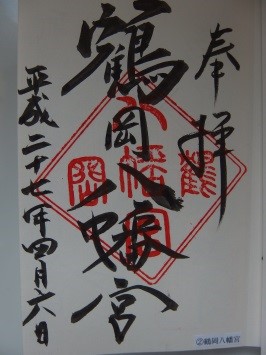 奉拝
鶴岡八幡宮
平成二十七年四月六日
鶴
八幡宮
岡
②鶴岡八幡宮